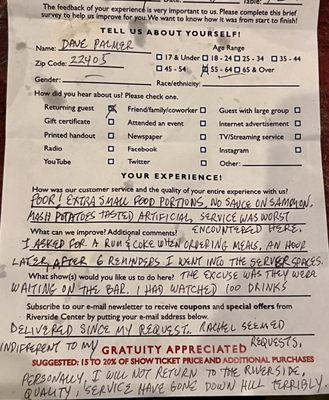 The feedback of your experience is very important to us. Please complete this brief
survey to help us improve for you. We want to know how it was from start to finish!
TELL US ABOUT YOURSELF!
Name: DAVE PALMER Age Range
Zip Code: 22405 17 & Under 18 - 24 25 - 34 35 - 44
45 - 54 55 - 64 65 & Over
Gender: Race/ethnicity:
How did you hear about us? Please check one.
Returning guest Friend/family/coworker Guest with large group
Gift certificate Attended an event Internet advertisement
Printed handout Newspaper TV/Streaming service
Radio Facebook Instagram
YouTube Twitter Other:
YOUR EXPERIENCE!
How was our customer service and the quality of your entire experience with us?
POOR! EXTRA SMALL FOOD PORTIONS, NO SAUCE ON SALMON,
MASH POTATOES TASTED ARTIFICIAL, SERVICE WAS WORST
What can we improve? Additional comments? ENCOUNTERED HERE.
I ASKED FOR A RUM & COKE WHEN ORDERING MEALS. AN HOUR
LATER, AFTER 6 REMINDERS I WENT INTO THE SERVER SPACES.
What show(s) would you like us to do here? THE EXCUSE WAS THEY WERE
WAITING ON THE BAR. I HAD WATCHED 100 DRINKS
Subscribe to our e-mail newsletter to receive coupons and special offers from
Riverside Center by putting your e-mail address below.
DELIVERED SINCE MY REQUEST. RACHEL SEEMED
INDIFFERENT TO MY REQUESTS,
GRATUITY APPRECIATED
SUGGESTED: 15 TO 20% OF SHOW TICKET PRICE AND ADDITIONAL PURCHASES
PERSONALLY, I WILL NOT RETURN TO THE RIVERSIDE,
QUALITY, SERVICE HAVE GONE DOWN HILL TERRIBLY.